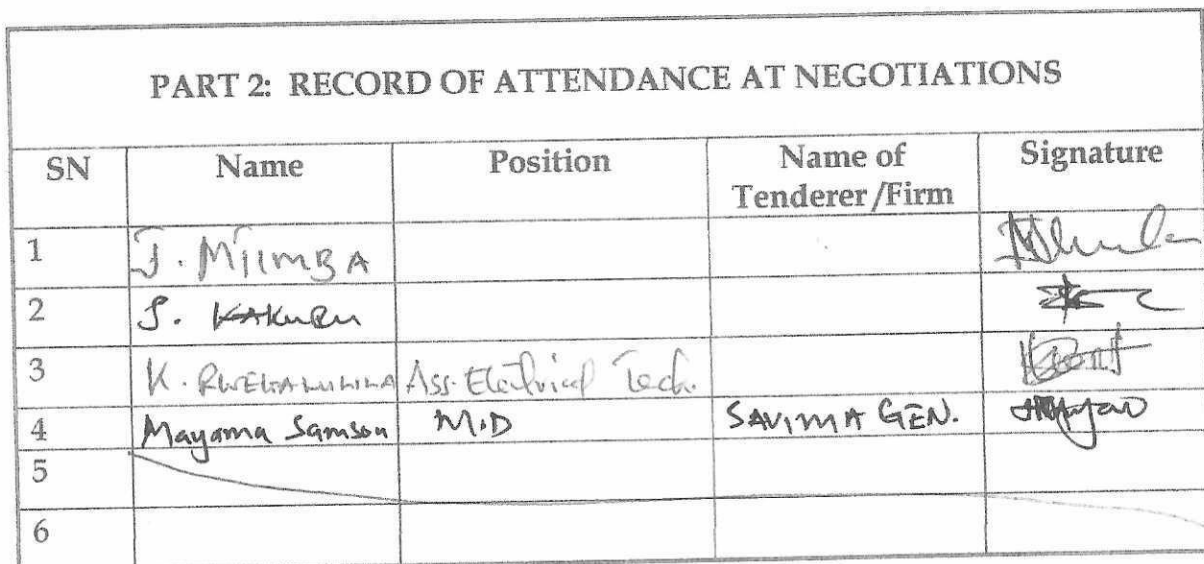 PART 2: RECORD OF ATTENDANCE AT NEGOTIATIONS
SN Name Position Name of Tenderer/Firm Signature
1 J. Mjimba
2 J. KAKURU
3 K. Ass. Electrical Tech.
4 Mayama Samson M.D SAVIMA GEN.
5
6